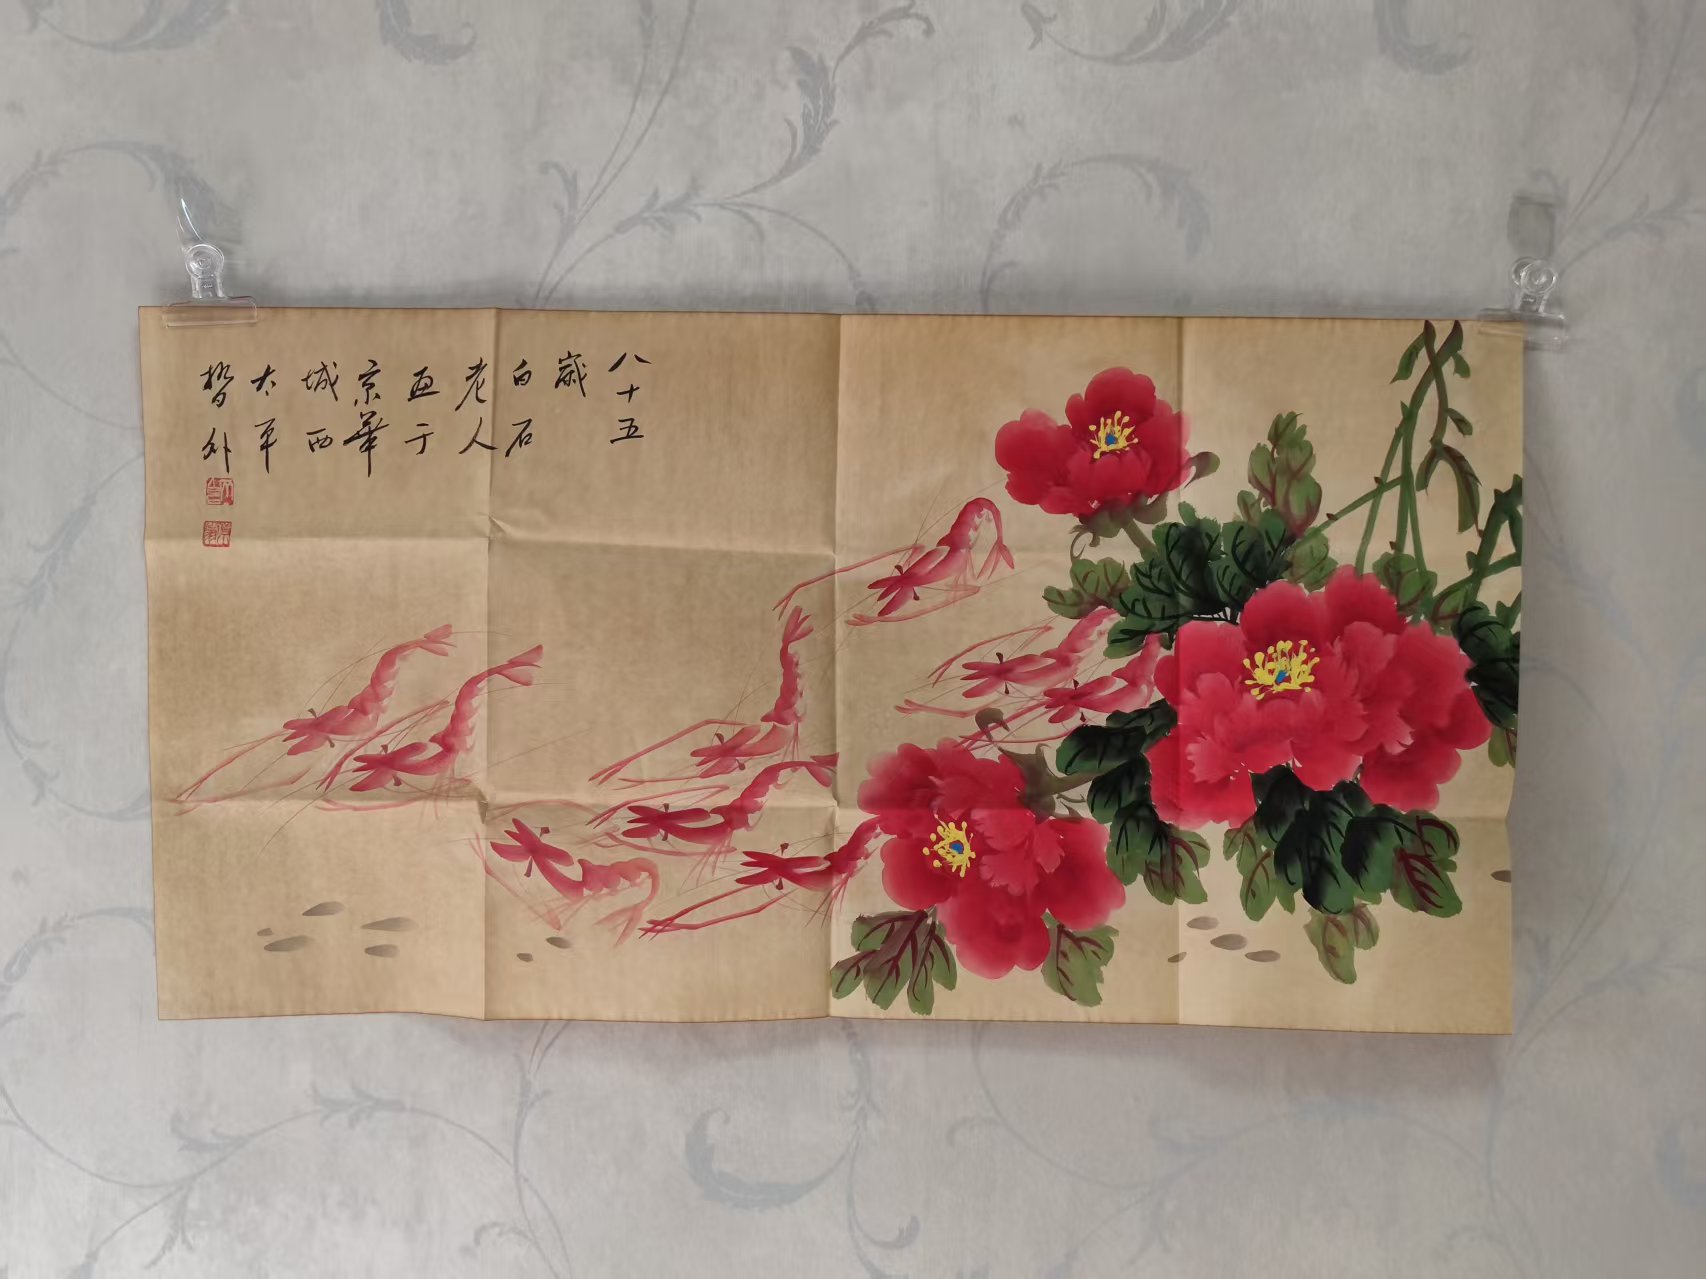 八十五
歲
白石
老人
画于
京華
城西
太平
橋外